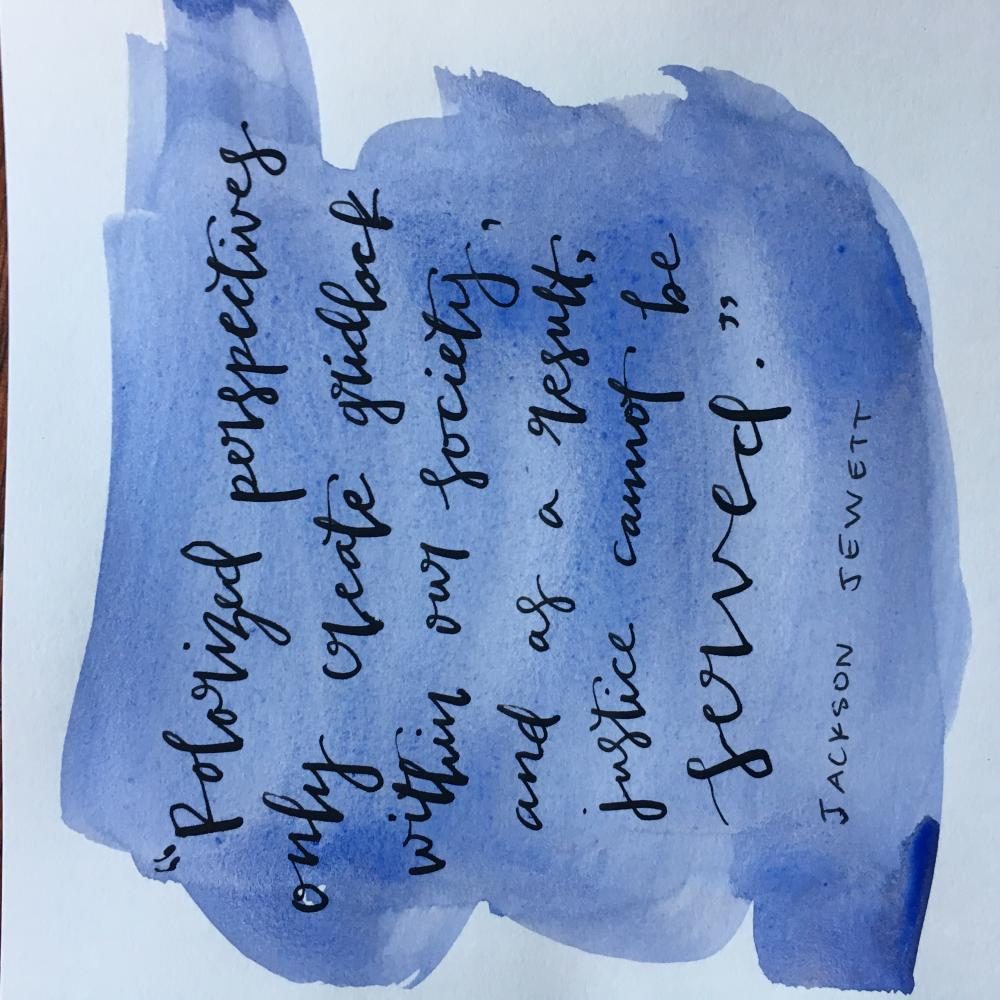 "Polorized perspectives
only create gridlock
within our society,
and as a result,
justice cannot be
served."
JACKSON JEWETT